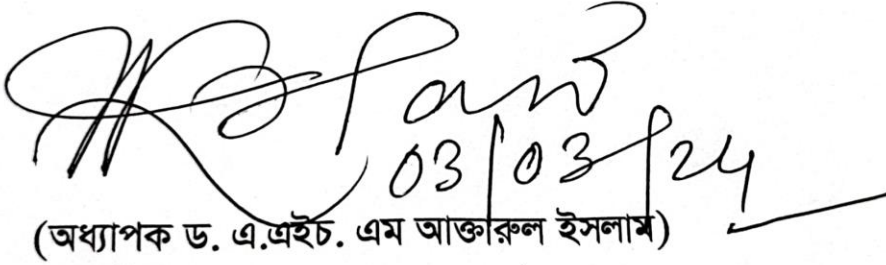 03/03/24
(অধ্যাপক ড. এ.এইচ. এম আক্তারুল ইসলাম)